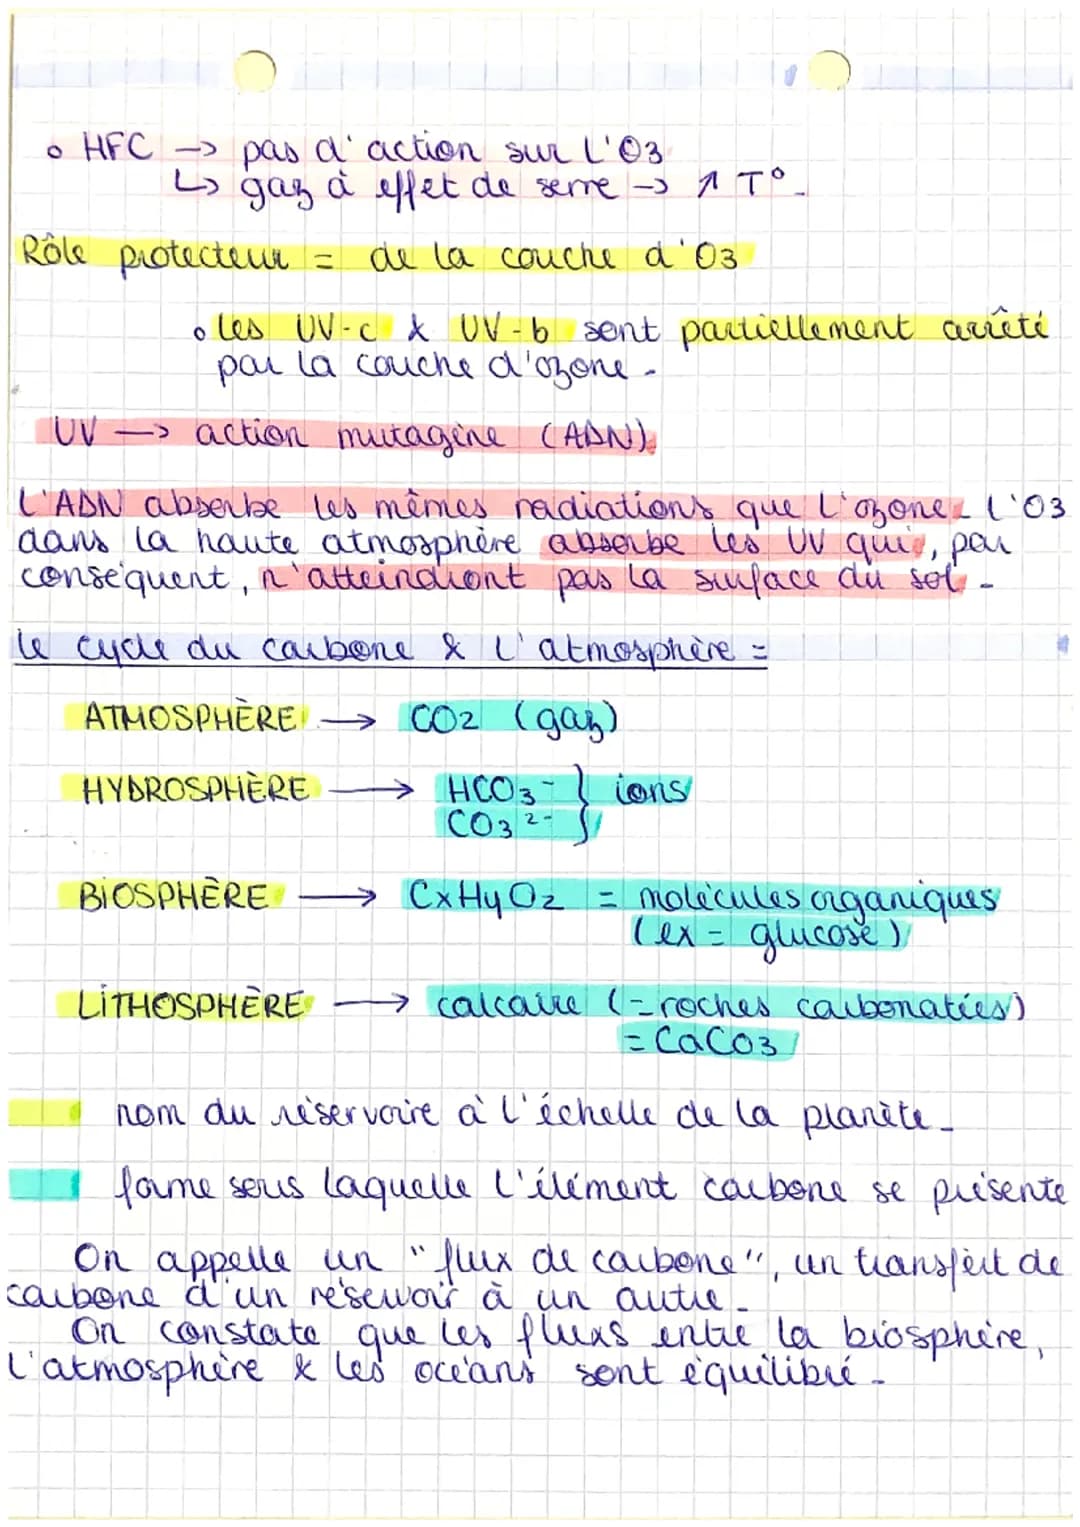 o HFC → pas d'action sur l'O3
↳ gaz à effet de serre → ↗ T°.
Rôle protecteur = de la couche d'O3
o les UV-c & UV-b sont partiellement arrêté
par la couche d'ozone.
UV → action mutagène (ADN).
L'ADN absorbe les mêmes radiations que l'ozone. L'O3
dans la haute atmosphère absorbe les UV qui, par
conséquent, n'atteindront pas la surface du sol.
le cycle du carbone & l'atmosphère =
ATMOSPHÈRE → CO2 (gaz)
HYDROSPHÈRE → HCO3 - } ions
CO3 2-
BIOSPHÈRE → CxHyOz = molécules organiques
(ex = glucose)
LITHOSPHÈRE → calcaire (= roches carbonatées)
= CaCO3
nom du réservoire à l'échelle de la planète.
forme sous laquelle l'élément carbone se présente
On appelle un "flux de carbone", un transfèrt de
carbone d'un réservoir à un autre.
On constate que les fluxs entre la biosphère,
l'atmosphère & les océans sont équilibré.